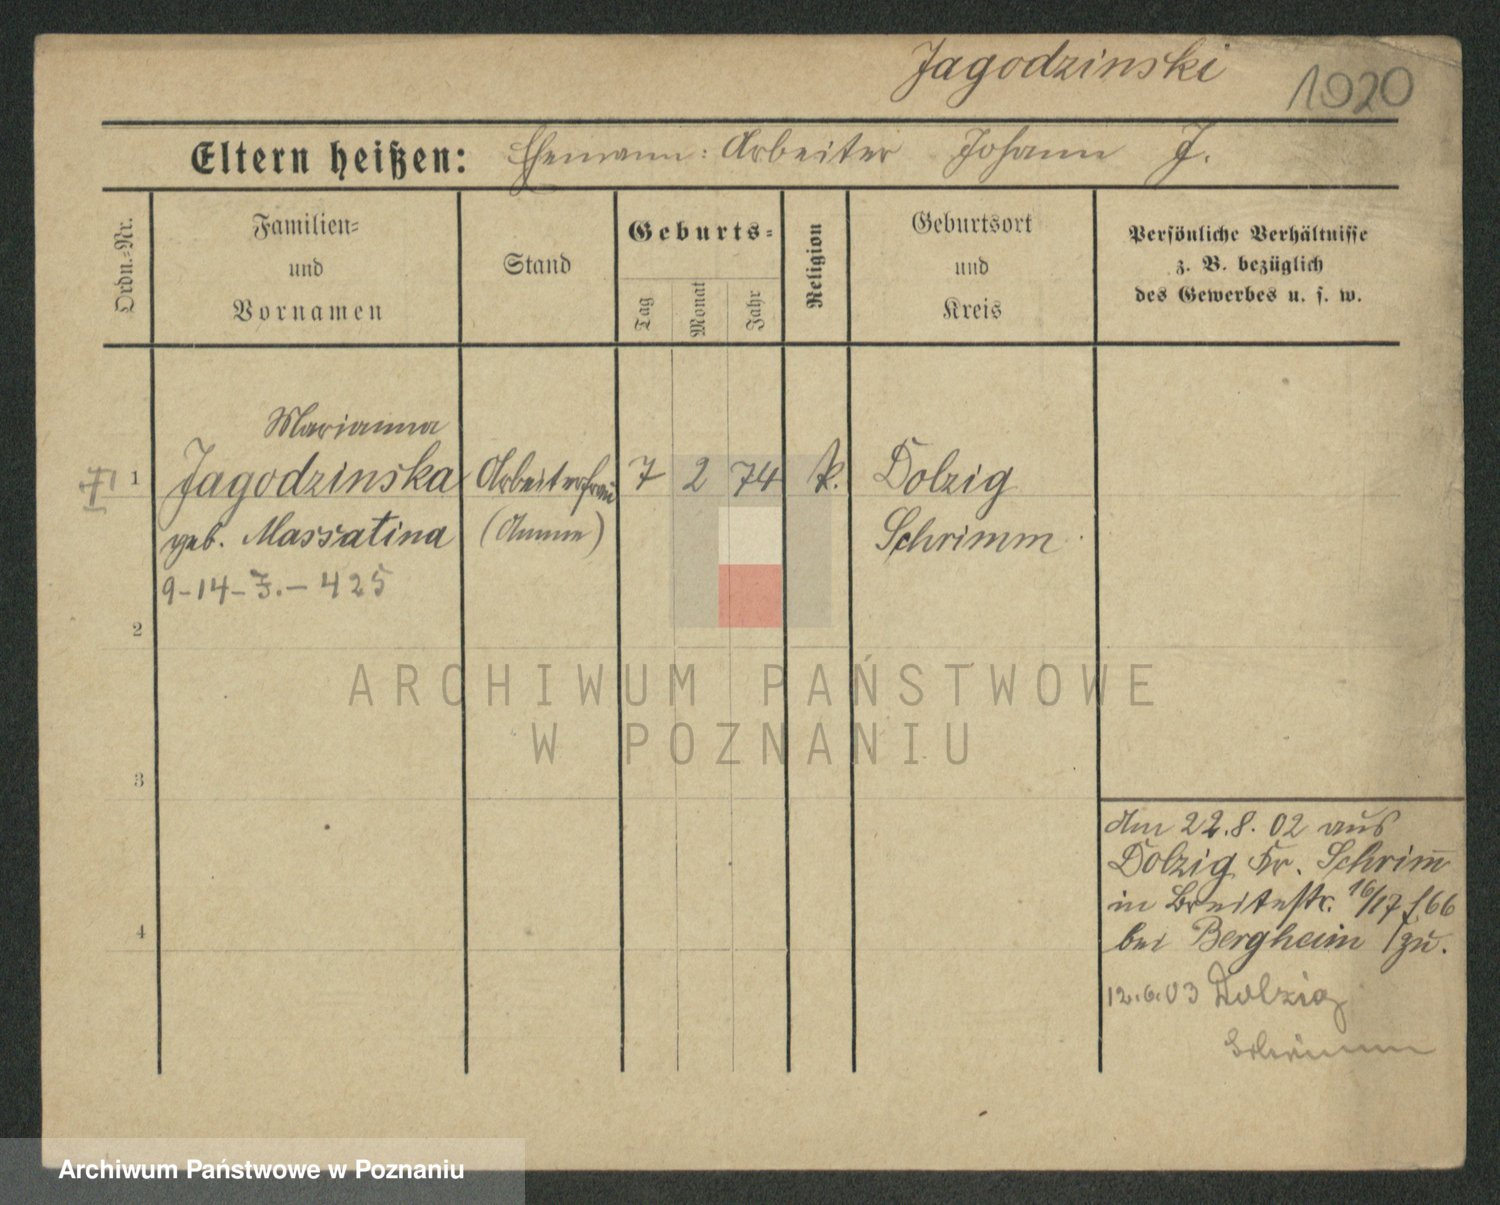 Jagodzinski
1920
Eltern heißen: Ehemann: Arbeiter Johann J.
Ordn.-Nr.
Familien-
und
Vornamen
Stand
Geburts-
Tag
Monat
Jahr
Religion
Geburtsort
und
Kreis
Persönliche Verhältnisse
z. B. bezüglich
des Gewerbes u. s. w.
Marianna
1 Jagodzinska Arbeiterfrau 7 2 74 k. Dolzig
geb. Massatina (Amme) Schrimm
9-14-J.-425
2
ARCHIWUM PAŃSTWOWE
W POZNANIU
3
Am 22.8.02 aus
Dolzig Kr. Schrim̄
in Breitestr. 16/17 f 66
4
bei Bergheim zu.
12.6.03 Dolzig
Schrimm
Archiwum Państwowe w Poznaniu